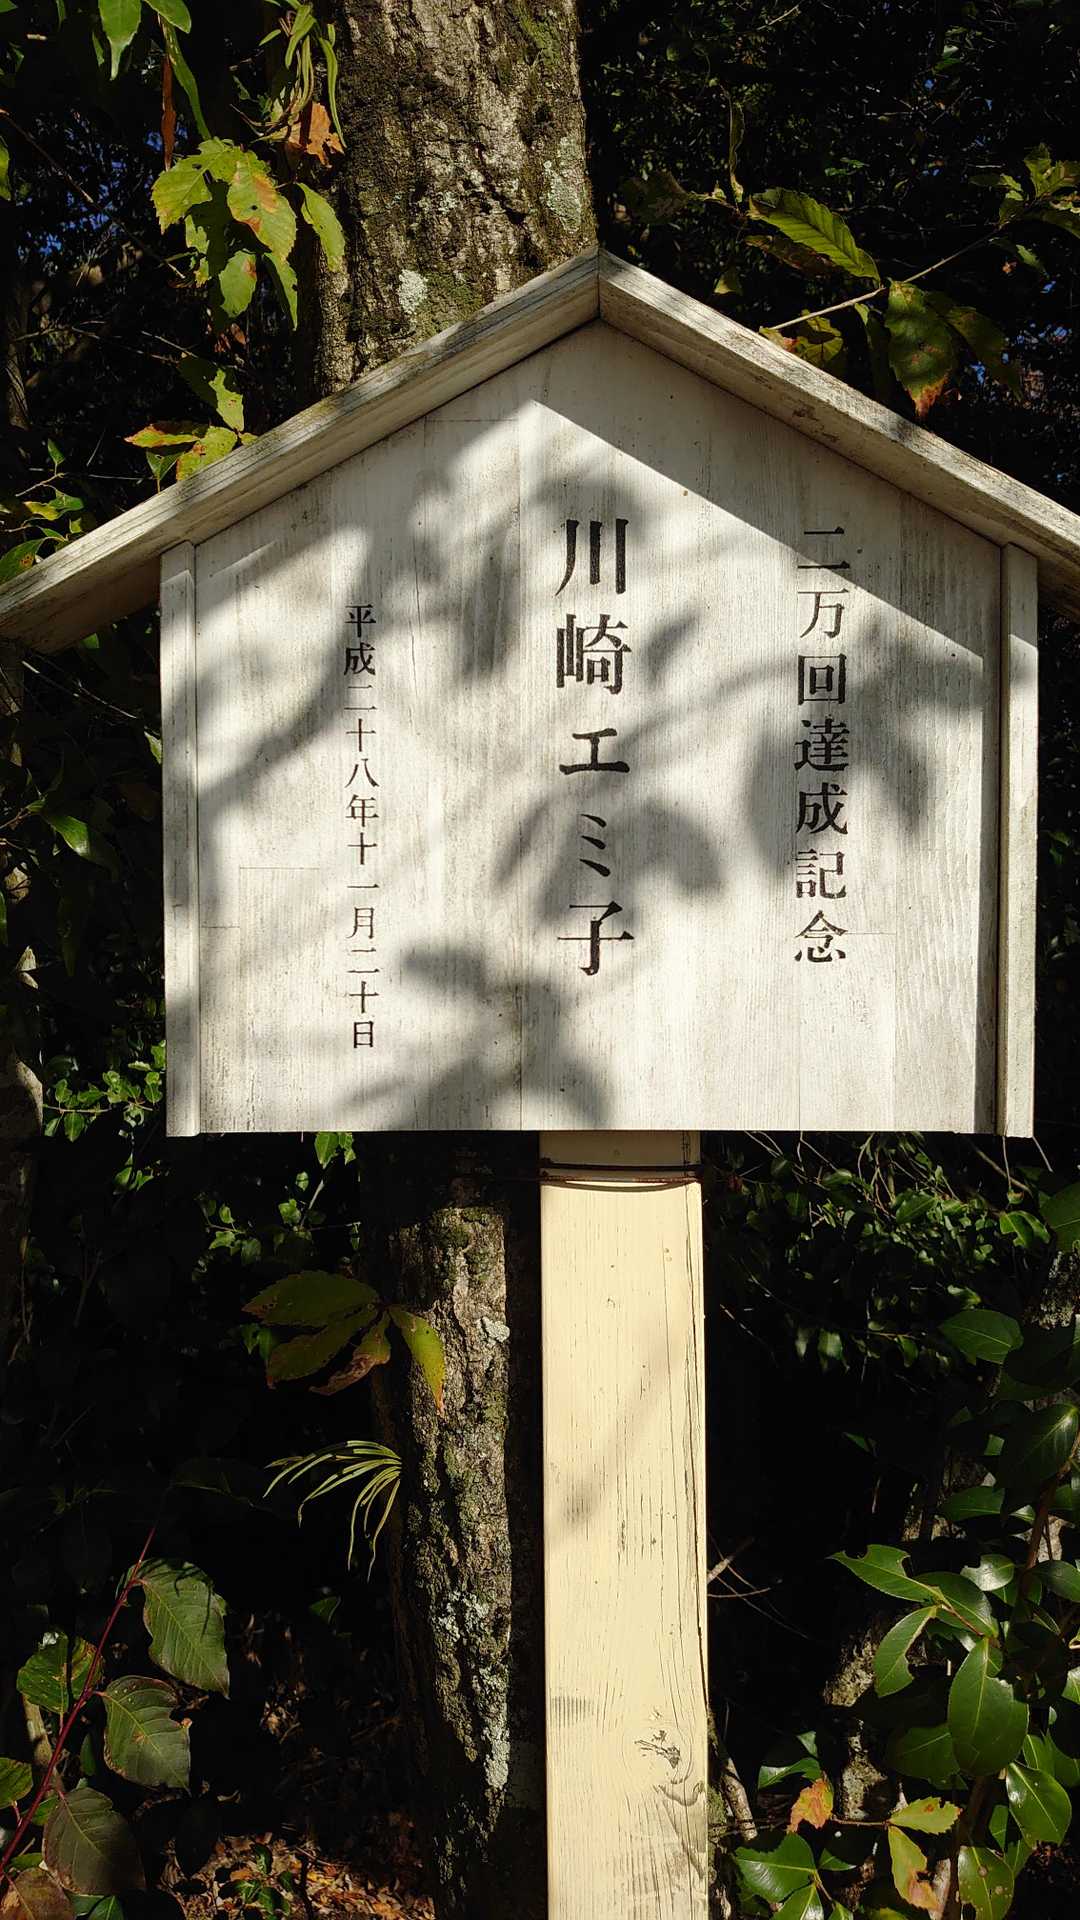 二万回達成記念
川崎エミ子
平成二十八年十一月二十日